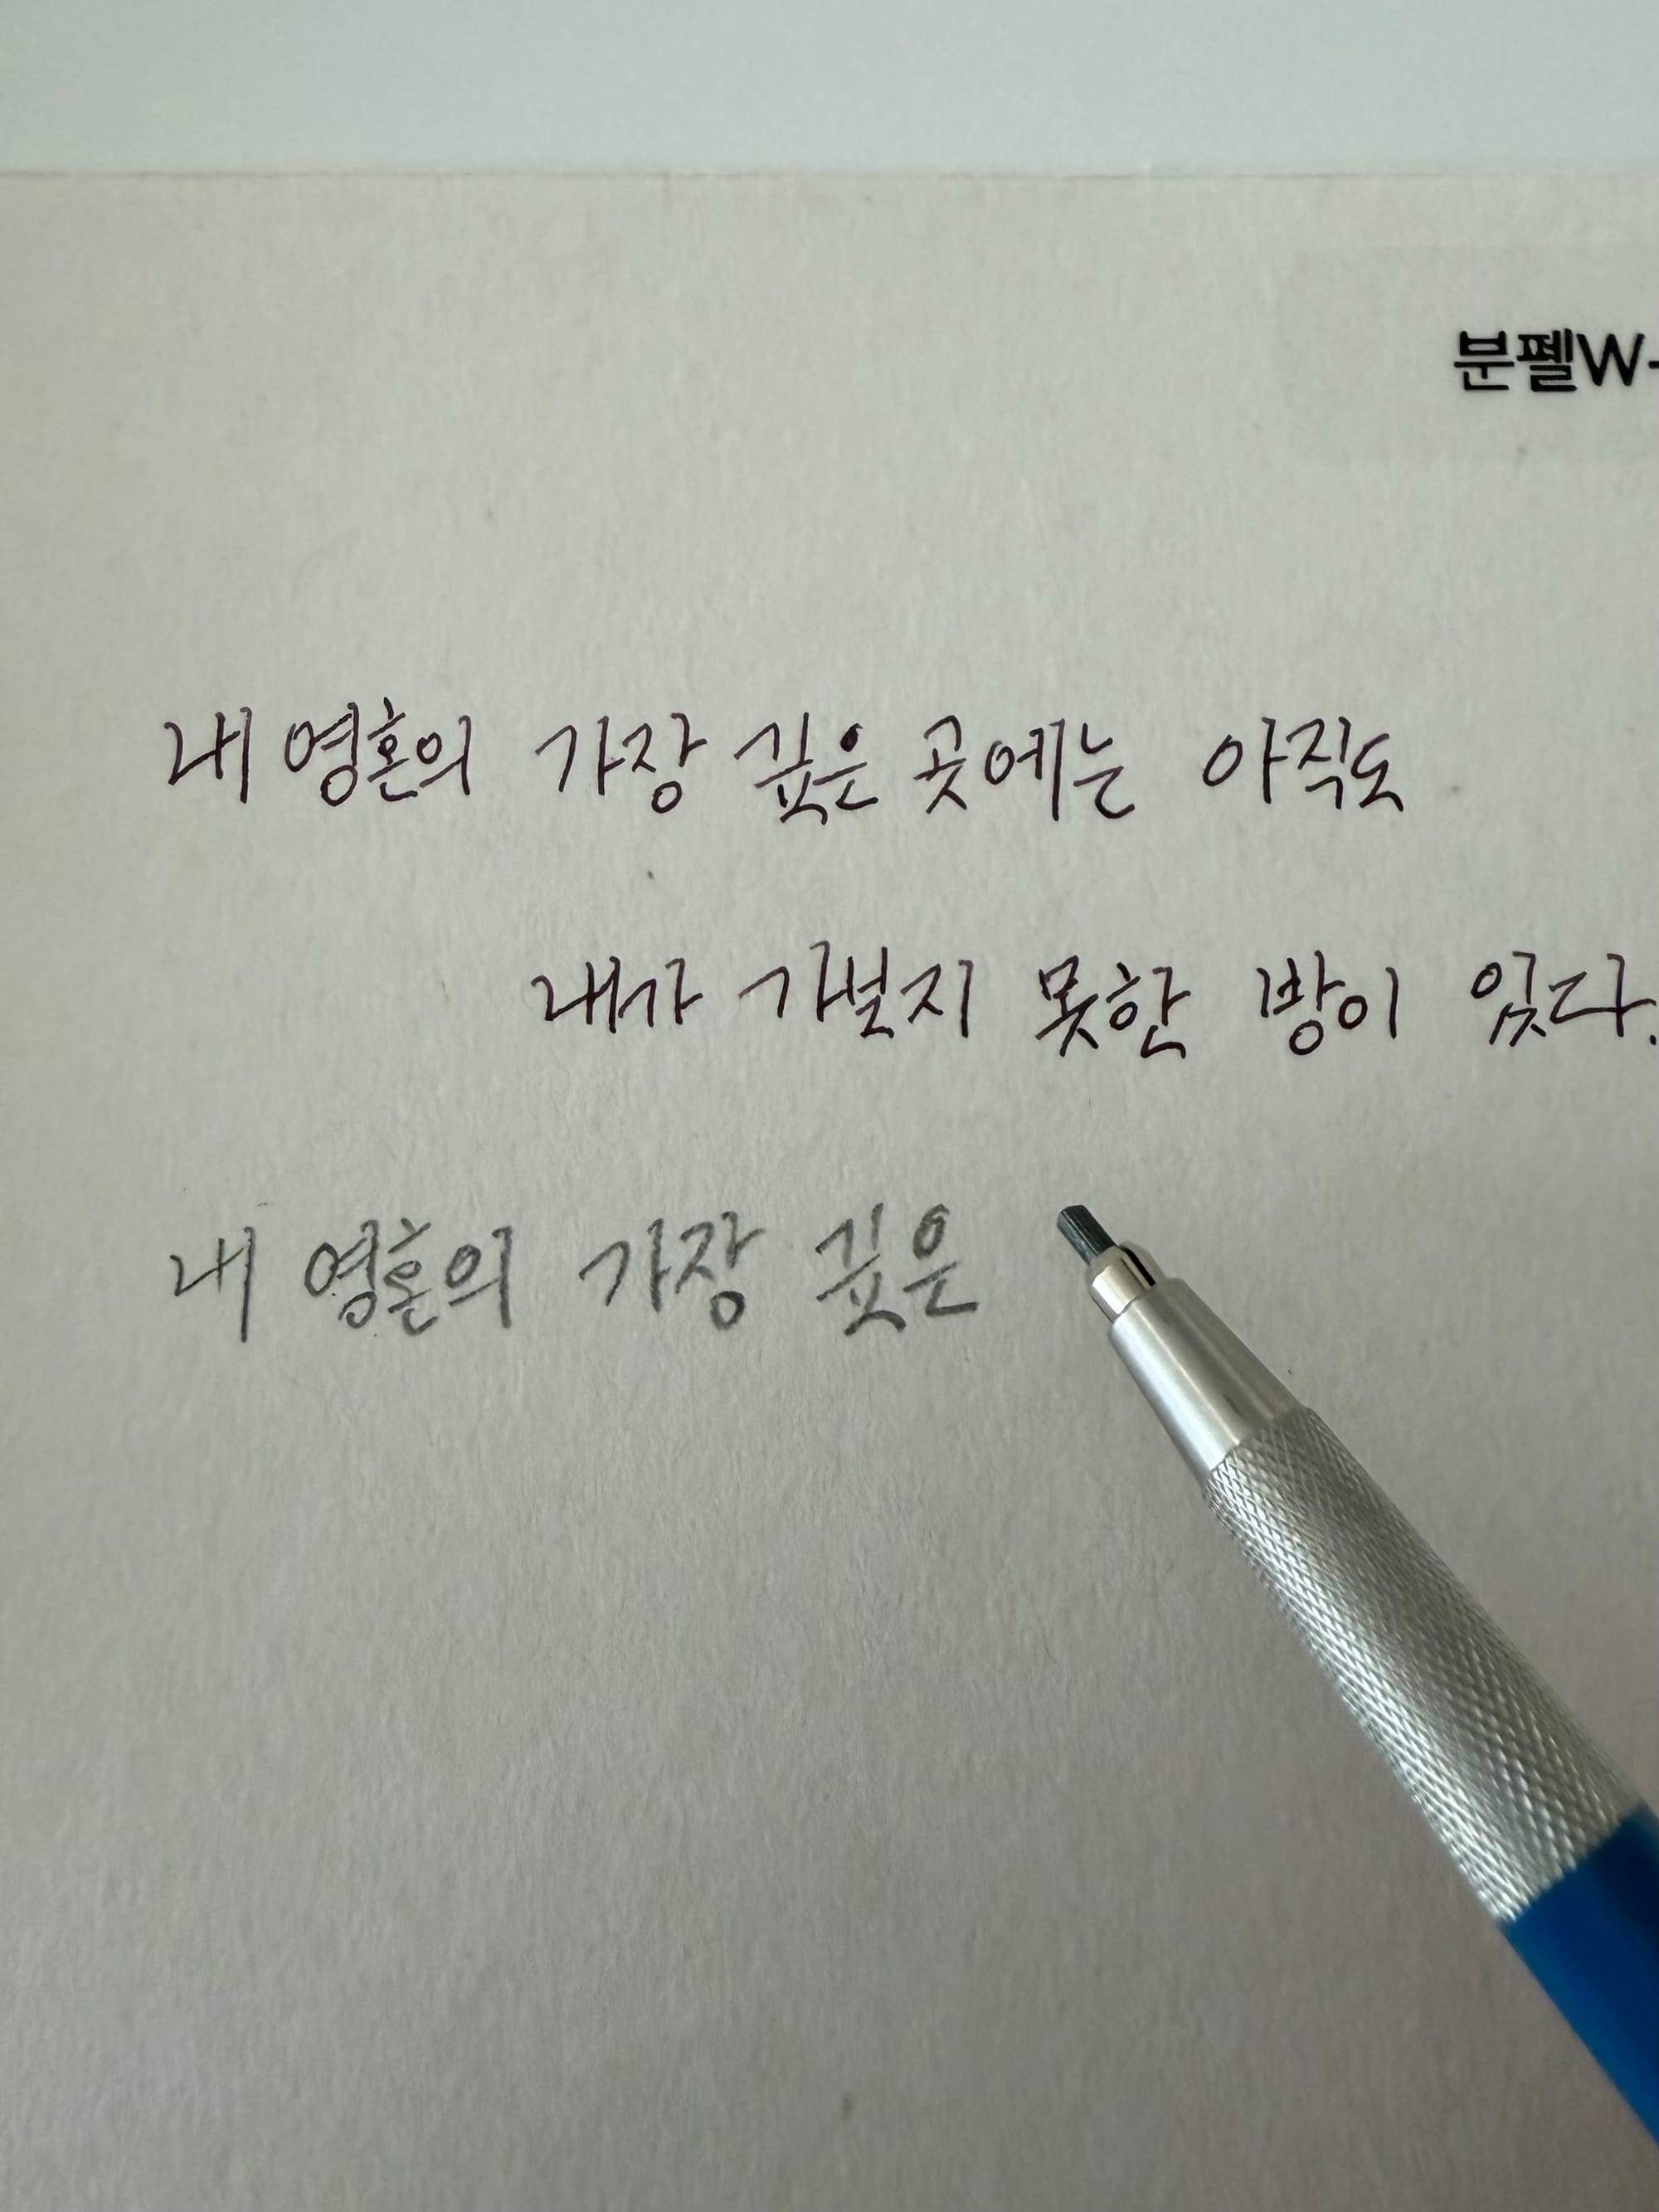 분펠W-
내 영혼의 가장 깊은 곳에는 아직도
내가 가보지 못한 방이 있다.
내 영혼의 가장 깊은